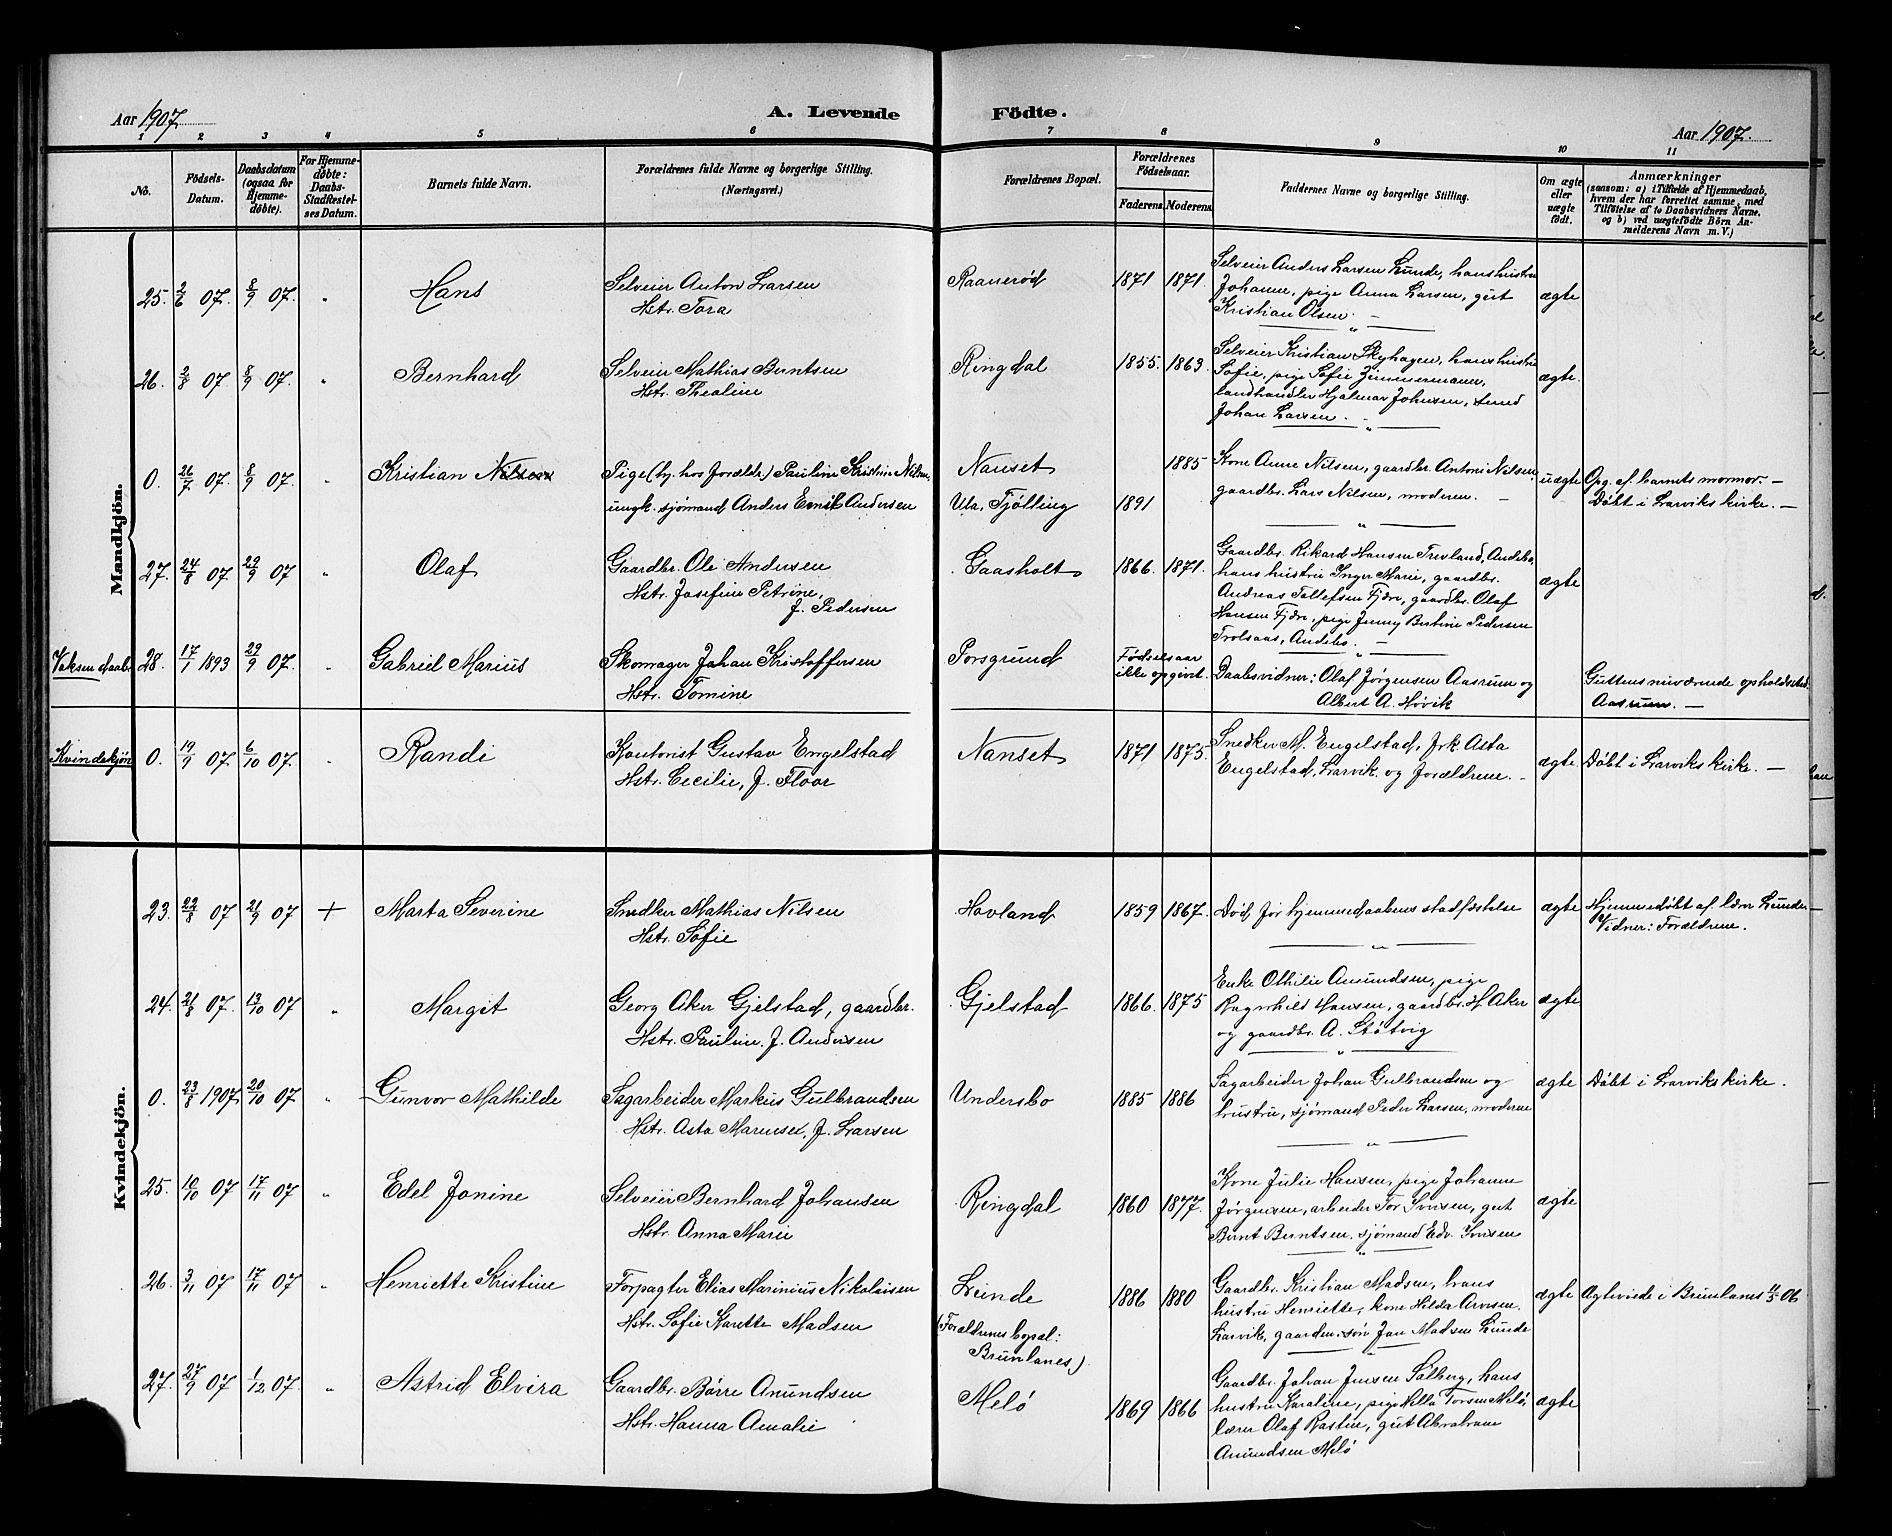 Aar 1907. A. Levende Födte. Aar 1907.
1 2 3 4 5 6 7 8 9 10 11
No. Födsels-Datum. Daabsdatum (ogsaa for Hjemme-døbte). For Hjemme-døbte: Daabs-Stadfestel-ses Datum. Barnets fulde Navn. Forældrenes fulde Navne og borgerlige Stilling. (Næringsvei.) Forældrenes Bopæl. Forældrenes Födselsaar. Faderens. Moderens. Faddernes Navne og borgerlige Stilling. Om ægte eller uægte födt. Anmærkninger (saasom: a) i Tilfælde af Hjemmedaab, hvem der har forrettet samme, med Tilföielse af to Daabsvidners Navne, og b) ved uægtefödte Börn An-melderens Navn m. V.)
Mandkjön.
25. 2/6 07. 8/9 07. " Hans Selveier Anton Larsen Raanerød 1871 1871. Selveier Anders Larsen Lunde, hans hustru ægte
Hstr. Tora Johanne, pige Anna Larsen, gut
Kristian Olsen. —
26. 2/8 07. 8/9 07. " Bernhard Selveier Mathias Berntsen Ringdal 1855. 1863. Selveier Kristian Skyhagen, hans hustru ægte.
Hstr. Thealine Sofie, pige Sofie Zimmermann,
landhandler Hjalmar Johnsen, smed
Johan Larsen. —
0. 26/7 07. 8/9 07. " Kristian Nilsen Pige (hj. hos forældr.) Pauline Kristine Nilsen, Nanset 1885 Kone Anne Nilsen, gaardbr. Antoni Nilsen, uægte Opg. af barnets mormor. —
ungk. sjømand Anders Emil Andersen Ula, Tjølling 1891 gaardbr. Lars Nilsen, moderen. — Døbt i Larviks kirke. —
27. 24/8 07 29/9 07 " Olaf Gaardbr. Ole Andersen Gaasholt 1866. 1871. Gaardbr. Rikard Hansen Trevland, Andebo, ægte
Hstr. Josefine Petrine, hans hustru Inger Marie, gaardbr.
f. Pedersen Andreas Tollefsen Fjære, gaardbr. Olaf
Hansen Fjære, pige Jenny Bertine Pedersen
Trolsaas, Andebo. —
Voksen daab. 28. 17/1 1893 29/9 07. " Gabriel Marius Skomager Johan Kristoffersen Porsgrund Födselsaar ikke opgivet. Daabsvidner: Olaf Jørgensen Aasrum og Guttens nuværende opholdssted
Hstr. Tomine Albert A. Høvik Aasrum. —
Kvindekjön 0. 19/9 07 6/10 07. " Randi Kontorist Gustav Engelstad Nanset 1871 1875. Snedker M. Engelstad, frk Asta ægte Døbt i Larviks kirke. —
Hstr. Cecilie, f. Floor Engelstad, Larvik, og forældrene. —
Kvindekjön.
23. 22/8 07 21/9 07 + Marta Severine Snedker Mathias Nilsen Hovland 1859 1867. Død før hjemmedaabens stadfæstelse ægte Hjemmedøbt af lærer Lunde. —
Hstr. Sofie Vidner: Forældrene.
24. 21/8 07. 13/10 07 " Margit Georg Aker Gjelstad, gaardbr. Gjelstad 1866. 1875 Enke Othilie Amundsen, pige ægte
Hstr. Pauline f. Andersen Ragnhild Hansen, gaardbr. H Aker
og gaardbr. A. Støtvig
0. 23/8 1907 20/10 07 " Gunvor Mathilde Sagarbeider Markus Gulbrandsen Undersbo 1885 1886 Sagarbeider Johan Gulbrandsen og ægte Døbt i Larviks kirke.
Hstr. Asta Marensee, f. Larsen hustru, sjømand Peder Larsen, moderen
25. 10/10 07 17/11 07 " Edel Jonine Selveier Bernhard Johansen Ringdal 1860 1877. Kone Julie Hansen, pige Johanne ægte
Hstr. Anna Marie Jørgensen, arbeider Tor Iversen, gut
Bernt Berntsen, sjømand Edv. Iversen
26. 3/11 07 17/11 07 " Henriette Kristine Forpagter Elias Marinius Nikolaisen Lunde 1886 1880 Gaardbr. Kristian Madsen, hans ægte Ægteviede i Brunlanes 06
Hstr. Sofie Karette Madsen (Forældrenes bopæl: hustru Henriette, kone Hilda Arvesen,
Brunlanes). Larvik, gaardm. søn Jan Madsen Lunde
27. 27/9 07 1/12 07. " Astrid Elvira Gaardbr. Børre Anundsen Melø 1869 1866 Gaardbr. Johan Jensen Solberg, hans ægte
Hstr. Hanna Amalie hustru Karoline, pige Hella Torsen Melø,
lærer Olaf Rastin, gut Abraham
Anundsen Melø